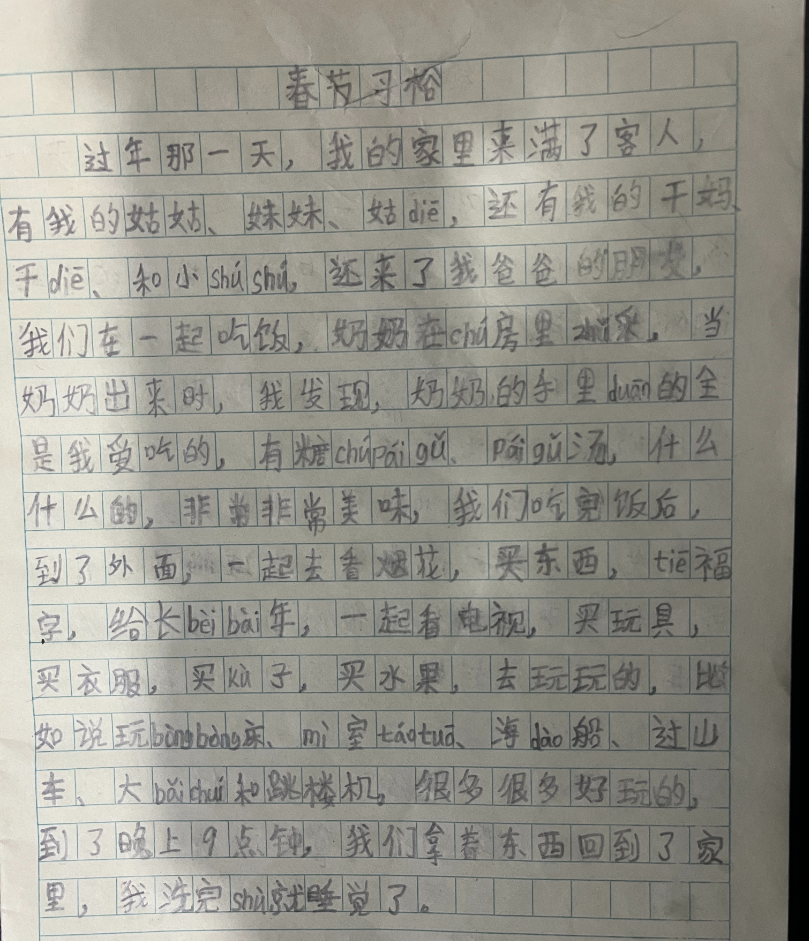 春节习俗
过年那一天，我的家里来满了客人，
有我的姑姑、妹妹、姑diē，还有我的干妈、
干diē、和小shú shú，还来了我爸爸的朋友，
我们在一起吃饭，奶奶在chú房里zhǔ菜，当
奶奶出来时，我发现，奶奶的手里duān的全
是我爱吃的，有糖chúpái gǔ、pái gǔ汤，什么
什么的，非常非常美味，我们吃完饭后，
到了外面，一起去看烟花，买东西，tiē福
字，给长bèi bài年，一起看电视，买玩具，
买衣服，买kù子，买水果，去玩玩的，比
如说玩bèng bèng床、mì室táo tuō、海dào船、过山
车、大bǎi chuí和跳楼机。很多很多好玩的，
到了晚上9点钟，我们拿着东西回到了家
里，我洗完shù就睡觉了。